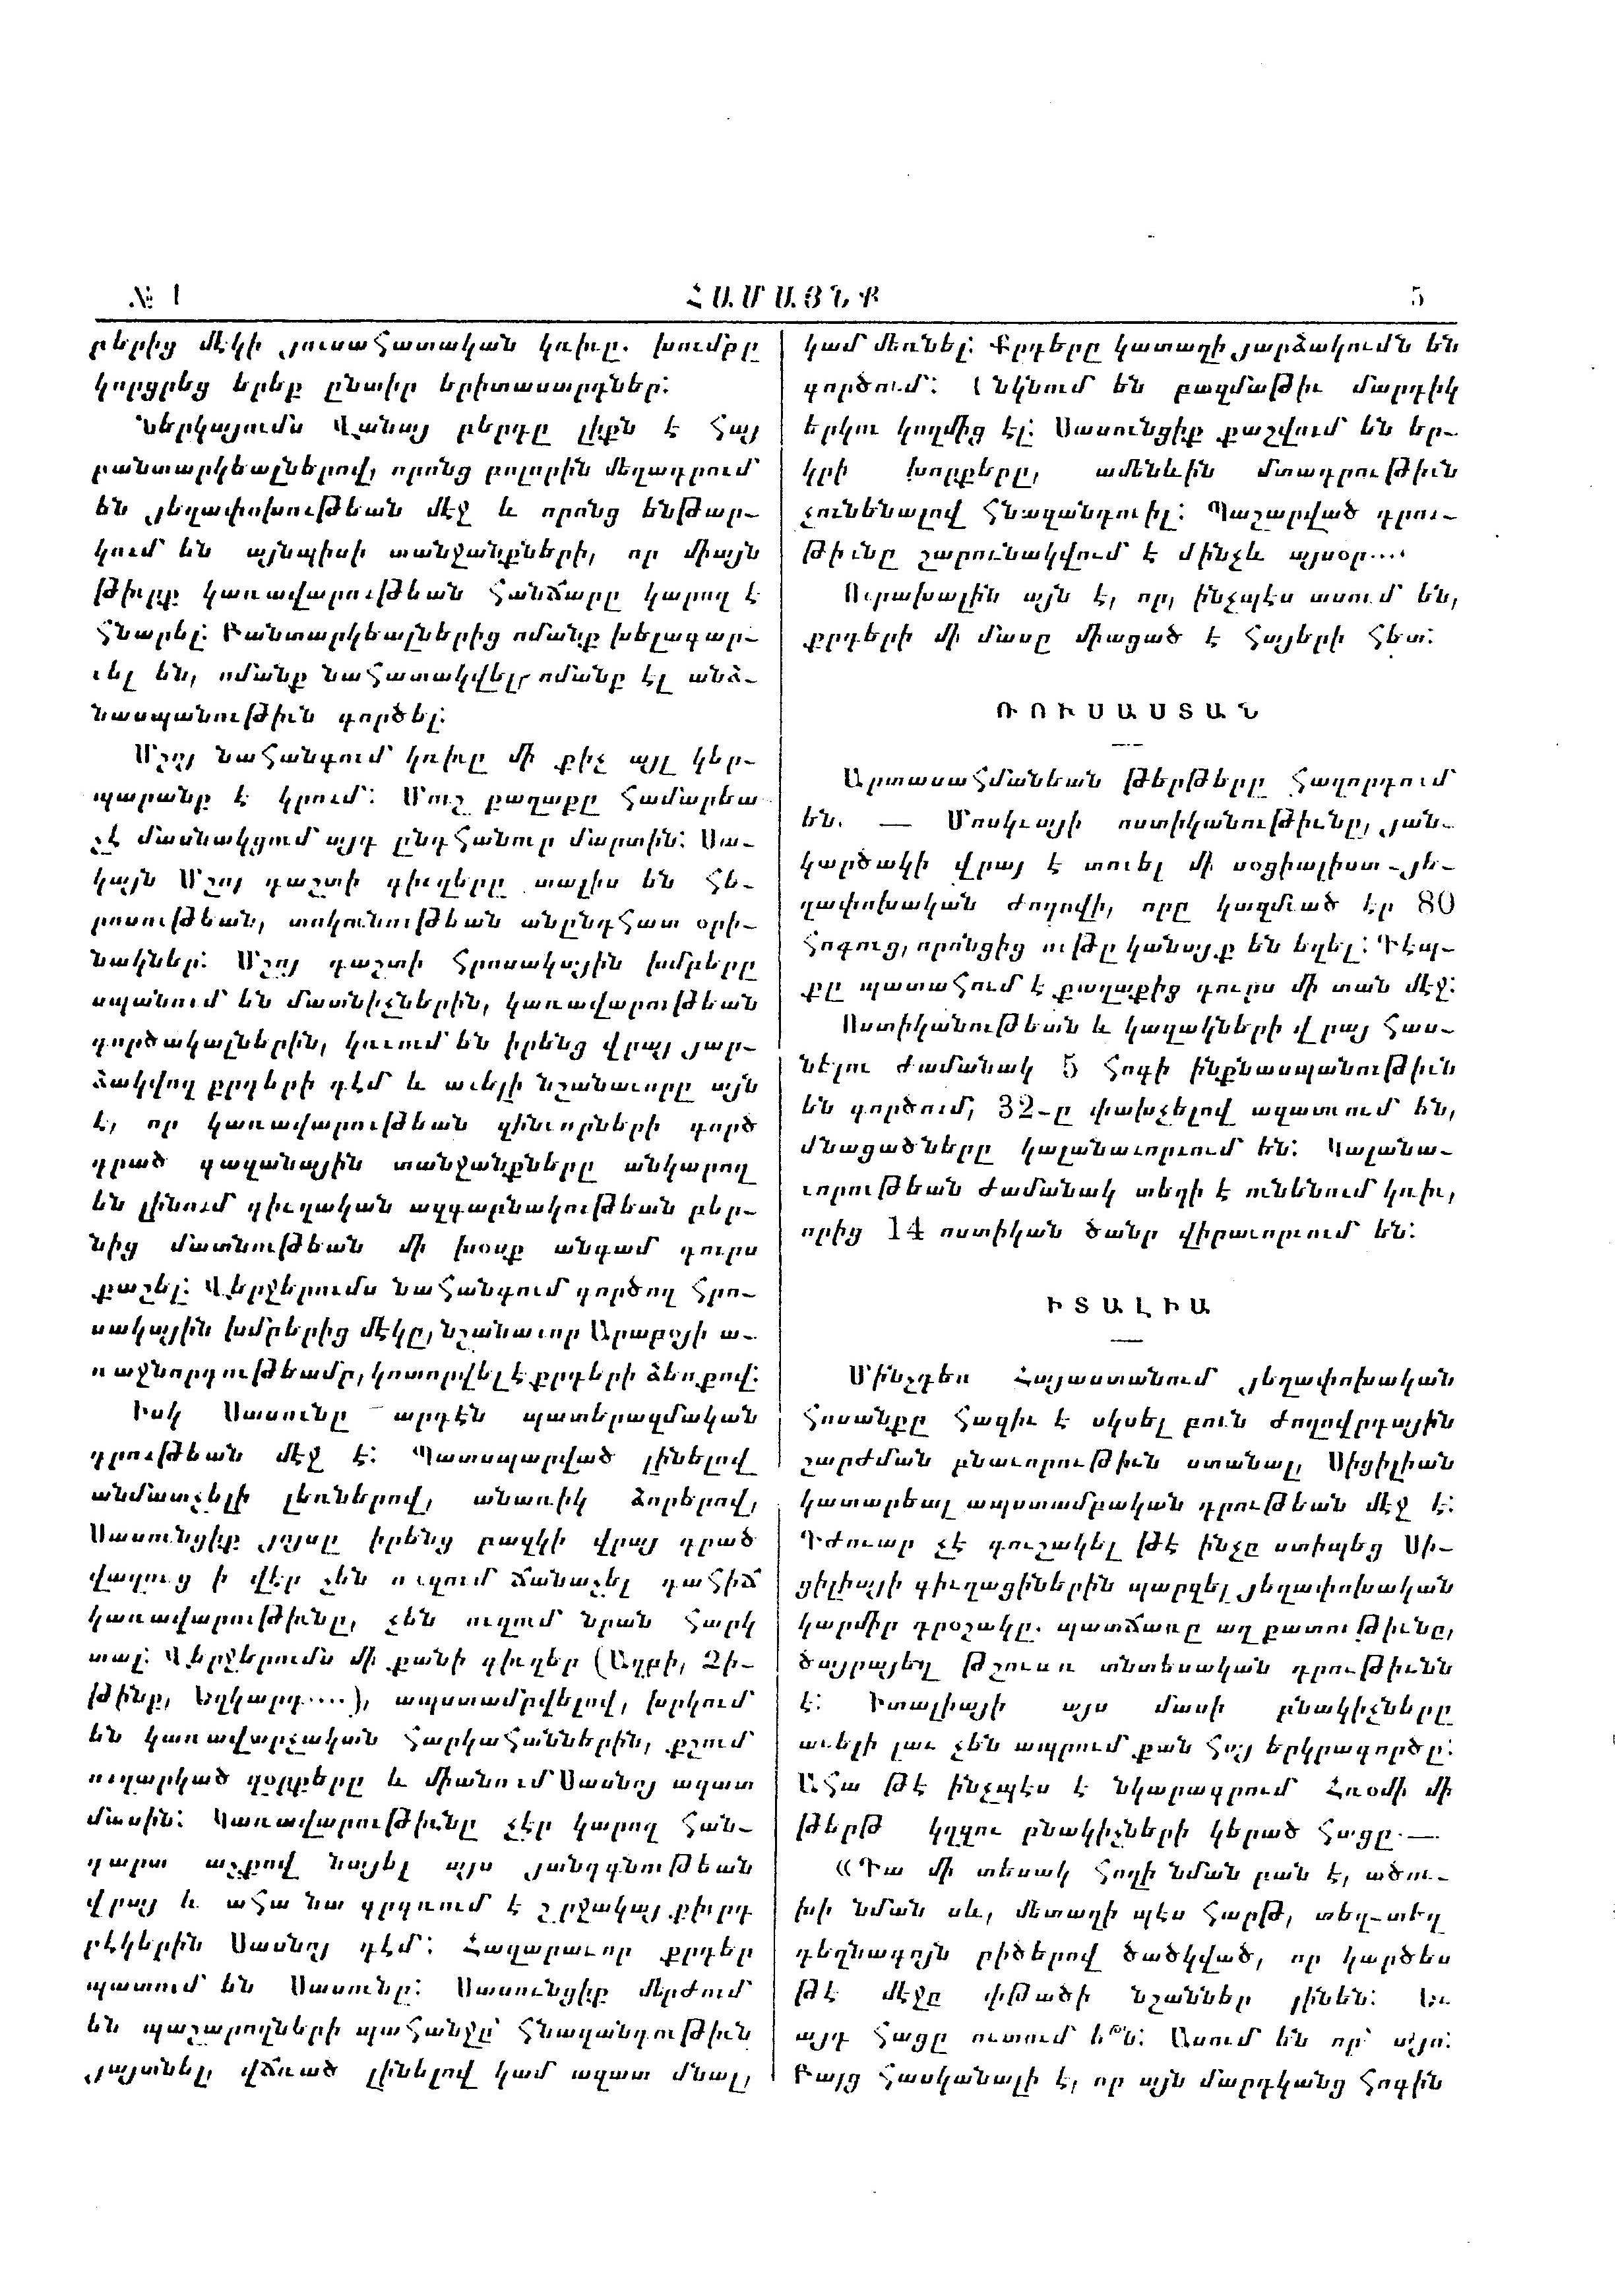 № 1
ՀԱՄԱՅՆՔ
5
բերից մէկի յուսահատական կռիւը. խումբը
կորցրեց երեք ընտիր երիտասարդներ:
Ներկայումս Վանայ բերդը լիքն է հայ
բանտարկեալներով, որոնց բոլորին մեղադրում
են յեղափոխութեան մէջ և որոնց ենթար-
կում են այնպիսի տանջանքների, որ միայն
թիւրք կառավարութեան հանճարը կարող է
հնարել: Բանտարկեալներից ոմանք խելագար-
ւել են, ոմանք նահատակվել, ոմանք էլ անձ-
նասպանութիւն գործել:
Մշոյ նահանգում կռիւը մի քիչ այլ կեր-
պարանք է կրում: Մուշ քաղաքը համարեա
չէ մասնակցում այդ ընդհանուր մարտին: Սա-
կայն Մշոյ դաշտի գիւղերը տալիս են հե-
րոսութեան, տոկունութեան անընդհատ օրի-
նակներ: Մշոյ դաշտի հրոսակային խմբերը
սպանում են մատնիչներին, կառավարութեան
գործակալներին, կռւում են իրենց վրայ յար-
ձակվող քրդերի դէմ և աւելի նշանաւորը այն
է, որ կառավարութեան զինւորների գործ
դրած գազանային տանջանքները անկարող
են լինում գիւղական ազգաբնակութեան բեր-
նից մատնութեան մի խօսք անգամ դուրս
քաշել: Վերջերումս նահանգում գործող հրո-
սակային խմբերից մէկը, նշանաւոր Արաբոյի ա-
ռաջնորդութեամբ, կոտորվել է քրդերի ձեռքով:
Իսկ Սասունը արդէն պատերազմական
դրութեան մէջ է: Պատսպարված լինելով
անմատչելի լեռներով, անառիկ ձորերով,
Սասունցիք յոյսը իրենց բազկի վրայ դրած
վաղուց ի վեր չեն ուզում ճանաչել դահիճ
կառավարութիւնը, չեն ուզում նրան հարկ
տալ: Վերջերումս մի քանի գիւղեր (Աղբի, Զի-
թինք, Եղկարդ....), ապստամբվելով, խրկում
են կառավարչական հարկահաններին, քշում
ուղարկած զօրքերը և միանում Սասնոյ ազատ
մասին: Կառավարութիւնը չէր կարող հան-
դարտ աչքով նայել այս յանդգնութեան
վրայ և ահա նա գրգռում է շրջակայ քիւրդ
բէկերին Սասնոյ դէմ: Հազարաւոր քրդեր
պատում են Սասունը: Սասունցիք մերժում
են պաշարողների պահանջը՝ հնազանդութիւն
յայտնել, վճռած լինելով կամ ազատ մնալ,
կամ մեռնել: Քրդերը կատաղի յարձակումն են
գործում: Ընկնում են բազմաթիւ մարդիկ
երկու կողմից էլ: Սասունցիք քաշվում են եր-
կրի խորքերը, ամենևին մտադրութիւն
չունենալով հնազանդուիլ: Պաշարված դրու-
թիւնը շարունակվում է մինչև այսօր....
Ուրախալին այն է, որ, ինչպէս ասում են,
քրդերի մի մասը միացած է հայերի հետ:
ՌՈՒՍԱՍՏԱՆ
Արտասահմանեան թերթերը հաղորդում
են. — Մոսկւայի ոստիկանութիւնը, յան-
կարծակի վրայ է տուել մի սօցիալիստ-յե-
ղափոխական ժողովի, որը կազմւած էր 80
հոգուց, որոնցից ութը կանայք են եղել: Դէպ-
քը պատահում է քաղաքից դուրս մի տան մէջ:
Ոստիկանութեան և կազակների վրայ հաս-
նելու ժամանակ 5 հոգի ինքնասպանութիւն
են գործում, 32-ը փախչելով ազատւում են,
մնացածները կալանաւորւում են: Կալանա-
ւորութեան ժամանակ տեղի է ունենում կռիւ,
որից 14 ոստիկան ծանր վիրաւորւում են:
ԻՏԱԼԻԱ
Մինչդեռ Հայաստանում յեղափոխական
հոսանքը հազիւ է սկսել բուն ժողովրդային
շարժման բնաւորութիւն ստանալ, Սիցիլիան
կատարեալ ապստամբական դրութեան մէջ է:
Դժուար չէ գուշակել թէ ինչը ստիպեց Սի-
ցիլիայի գիւղացիներին պարզել յեղափոխական
կարմիր դրօշակը. պատճառը աղքատութիւնը,
ծայրայեղ թշուառ տնտեսական դրութիւնն
է: Իտալիայի այս մասի բնակիչները
աւելի լաւ չեն ապրում քան հայ երկրագործը:
Ահա թէ ինչպէս է նկարագրում Հռօմի մի
թերթ կղզու բնակիչների կերած հացը.—
«Դա մի տեսակ հողի նման բան է, ածու-
խի նման սև, մետաղի պէս հարթ, տեղ-տեղ
դեղնագոյն բիծերով ծածկված, որ կարծես
թէ մէջը փթածի նշաններ լինեն: Եւ
այդ հացը ուտում ե՞ն: Ասում են որ՝ այո:
Բայց հասկանալի է, որ այն մարդկանց հոգին